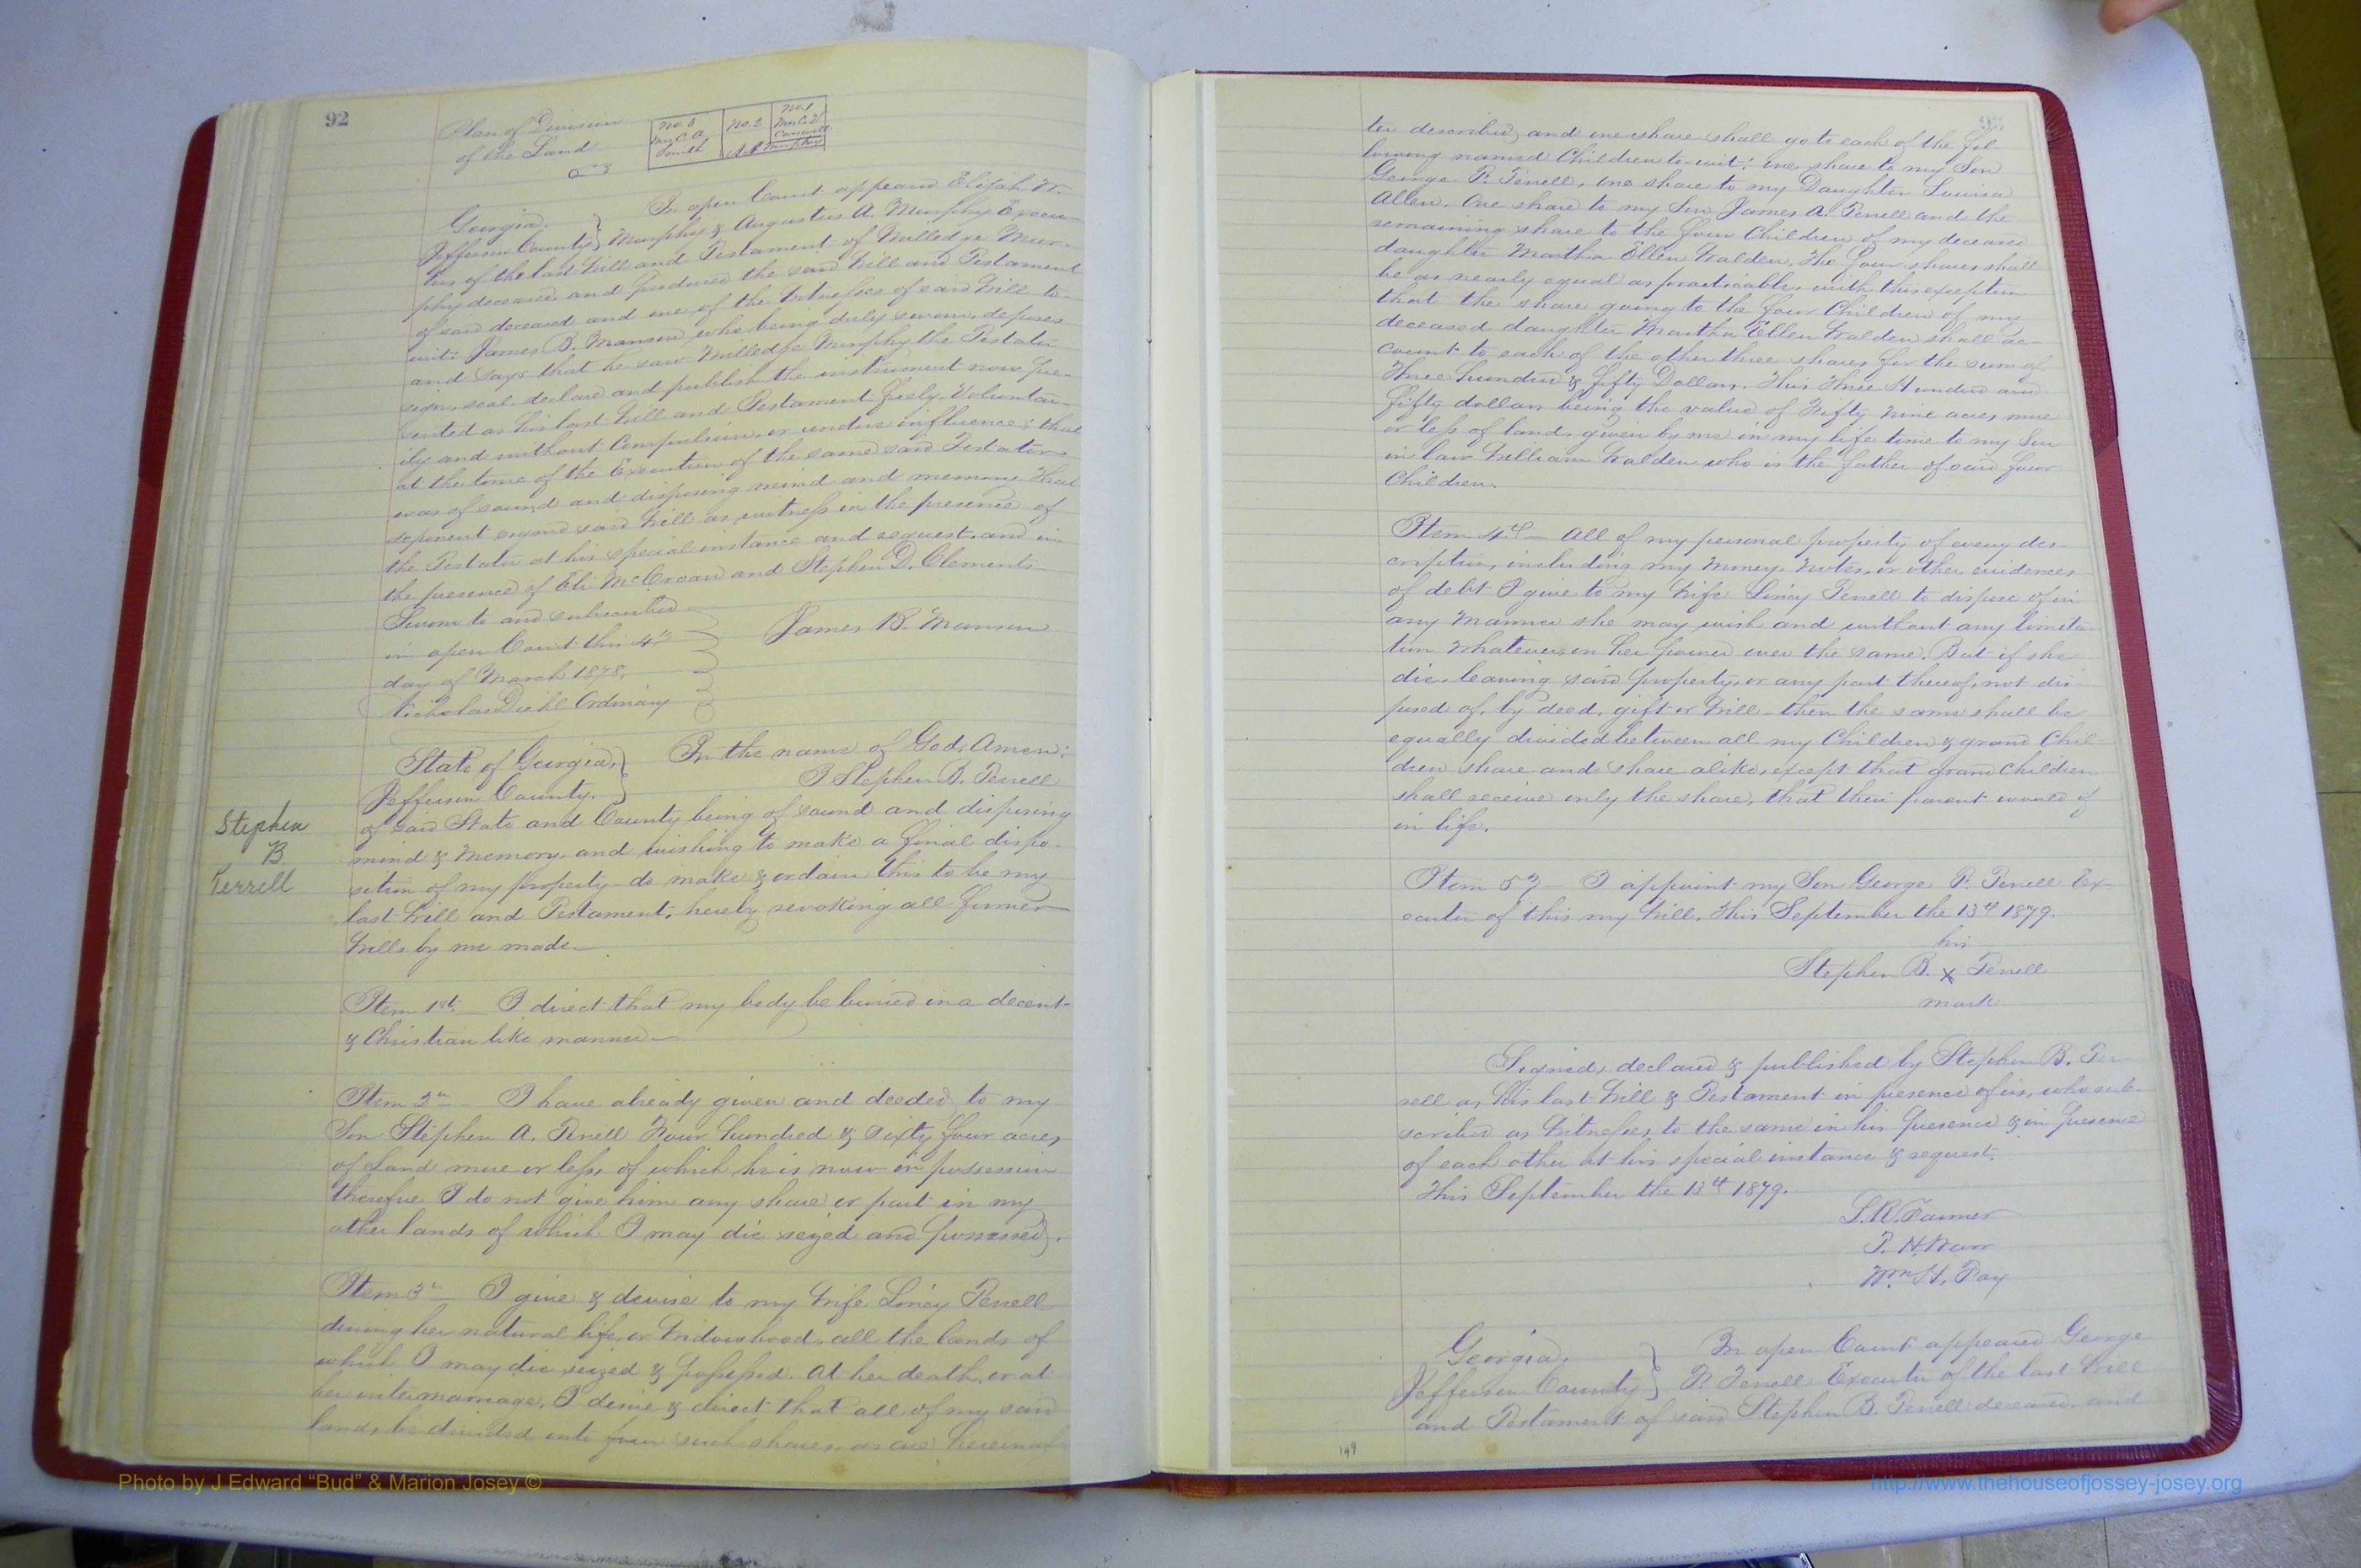 92
Plan of Division
of the Land
No. 3
Mrs C. A.
Smith
No. 2
A. A. Murphy
No. 1
Mrs C. V.
Georgia,
Jefferson County
In open Court appeared Elijah W.
Murphy & Augustus A. Murphy Execu-
tors of the last Will and Testament of Milledge Mur-
phy deceased and produced the said Will and Testament
of said deceased and one of the Witnesses of said Will to
wit: James B. Manson who being duly sworn, deposes
and says that he saw Milledge Murphy the Testator
sign, seal declare and publish the instrument now pre-
sented as his last Will and Testament freely, Voluntar-
ily and without Compulsion or undue influence; that
at the time of the Execution of the same said Testator
was of sound and disposing mind and memory. That
deponent signed said Will as witness in the presence of
the Testator at his special instance and request and in
the presence of Eli McCroan and Stephen D. Clements
Sworn to and subscribed
in open Court this 4th
day of March 1878.
Nicholas Diehl Ordinary
James B. Manson
State of Georgia,
Jefferson County.
In the name of God, Amen:
I Stephen B. Terrell
Stephen
B.
Terrell
of said State and County being of sound and disposing
mind & Memory, and wishing to make a final dispo-
sition of my property do make & ordain this to be my
last Will and Testament, hereby revoking all former
Wills by me made.
Item 1st. I direct that my body be buried in a decent
& Christian like manner
Item 2n I have already given and deeded to my
Son Stephen A. Terrell Four hundred & sixty four acres
of Land more or less, of which he is now in possession
therefore I do not give him any share or part in my
other lands of which I may die seized and possessed.
Item 3d I give & devise to my Wife Liney Terrell
during her natural life, or Widowhood, all the lands of
which I may die seized & possessed. At her death, or at
her intermarriage, I desire & direct that all of my said
lands be divided into four such shares, as are hereinaf-
ter described, and one share shall go to each of the fol-
lowing named Children to wit: one share to my Son
George P. Terrell, one share to my Daughter Louisa
Allen. One share to my Son James A. Terrell and the
remaining share to the four Children of my deceased
daughter Martha Ellen Walden, The four shares shall
be as nearly equal as practicable, with this exception
that the share going to the four Children of my
deceased daughter Martha Ellen Walden shall ac-
count to each of the other three shares for the sum of
Three hundred & fifty Dollars. This Three Hundred and
fifty dollars being the value of Fifty nine acres, more
or less of land, given by me in my life time to my Son
in law William Walden who is the father of said four
Children.
Item 4th All of my personal property of every des-
cription, including my Money, Notes, or other evidences
of debt I give to my Wife Liney Terrell to dispose of in
any Manner she may wish and without any limita-
tion Whatever, on her power over the same. But if she
die, leaving said property, or any part thereof, not dis-
posed of, by deed, gift or Will then the same shall be
equally divided between all my Children & grand Chil-
dren share and share alike, except that grand children
shall receive only the share, that their parent would if
in life.
Item 5th I appoint my Son George P. Terrell Ex-
ecutor of this my Will. This September the 13th 1879.
his
Stephen B. x Terrell
mark
Signed, declared & published by Stephen B. Ter-
rell as his last Will & Testament in presence of us, who sub-
scribed as Witnesses to the same in his Presence & in Presence
of each other at his special instance & request.
This September the 13th 1879.
L. R. Farmer
Wm. H. Fay
Georgia,
Jefferson County
In open Court appeared George
P. Terrell Executor of the last Will
and Testament of said Stephen B. Terrell deceased, and
149
Photo by J Edward “Bud” & Marion Josey ©
http://www.thehouseofjossey-josey.org